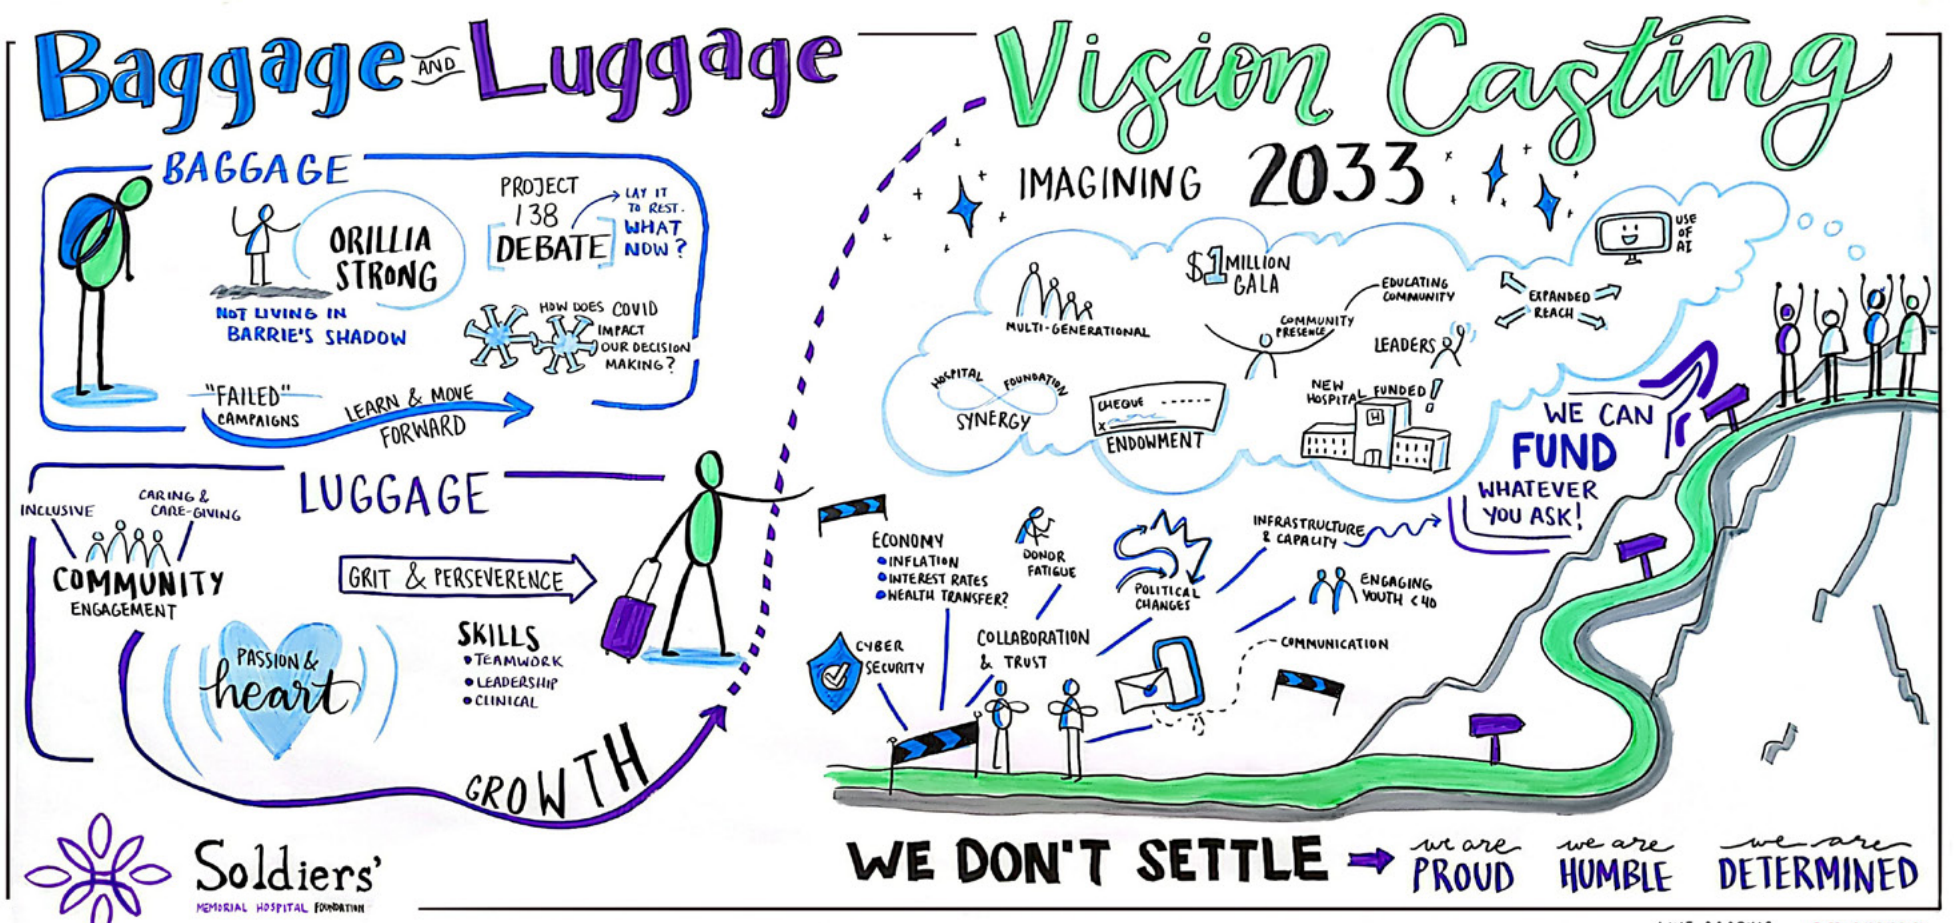 Baggage AND Luggage
Vision Casting
BAGGAGE
ORILLIA
STRONG
NOT LIVING IN
BARRIE'S SHADOW
PROJECT
138
DEBATE
LAY IT
TO REST.
WHAT
NOW?
HOW DOES COVID
IMPACT
OUR DECISION
MAKING?
"FAILED"
CAMPAIGNS
LEARN & MOVE
FORWARD
LUGGAGE
INCLUSIVE
CARING &
CARE-GIVING
COMMUNITY
ENGAGEMENT
GRIT & PERSEVERENCE
PASSION &
heart
SKILLS
• TEAMWORK
• LEADERSHIP
• CLINICAL
GROWTH
Soldiers'
MEMORIAL HOSPITAL FOUNDATION
IMAGINING 2033
USE
OF
AI
MULTI-GENERATIONAL
$1 MILLION
GALA
EDUCATING
COMMUNITY
COMMUNITY
PRESENCE
LEADERS
EXPANDED
REACH
HOSPITAL FOUNDATION
SYNERGY
CHEQUE
X
ENDOWMENT
NEW
HOSPITAL FUNDED!
H
WE CAN
FUND
WHATEVER
YOU ASK!
ECONOMY
• INFLATION
• INTEREST RATES
• WEALTH TRANSFER?
DONOR
FATIGUE
POLITICAL
CHANGES
INFRASTRUCTURE
& CAPACITY
ENGAGING
YOUTH <40
CYBER
SECURITY
COLLABORATION
& TRUST
COMMUNICATION
WE DON'T SETTLE
we are
PROUD
we are
HUMBLE
we are
DETERMINED